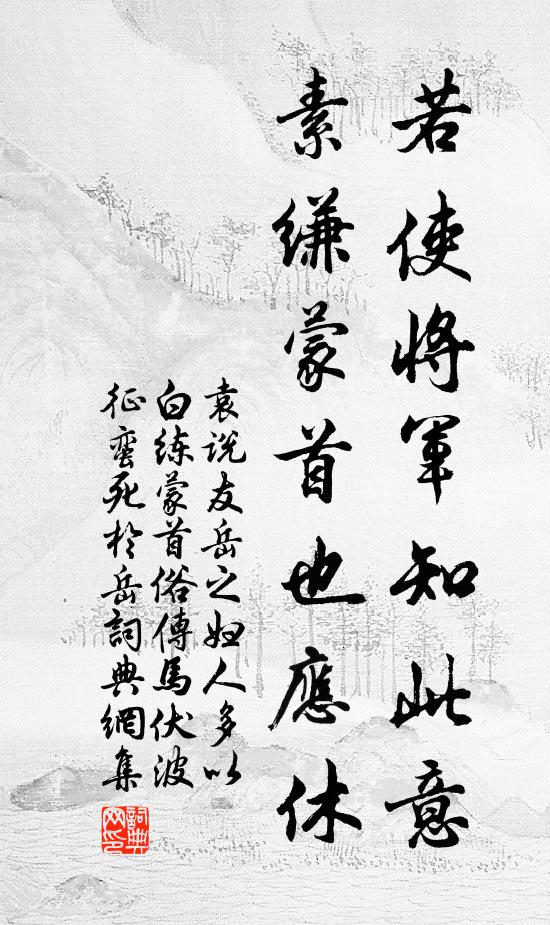 若使將軍知此意
素縑蒙首也應休
袁说友岳之妇人多以
白练蒙首俗傳馬伏波
征蛮死於岳詞典網集
詞典
网印